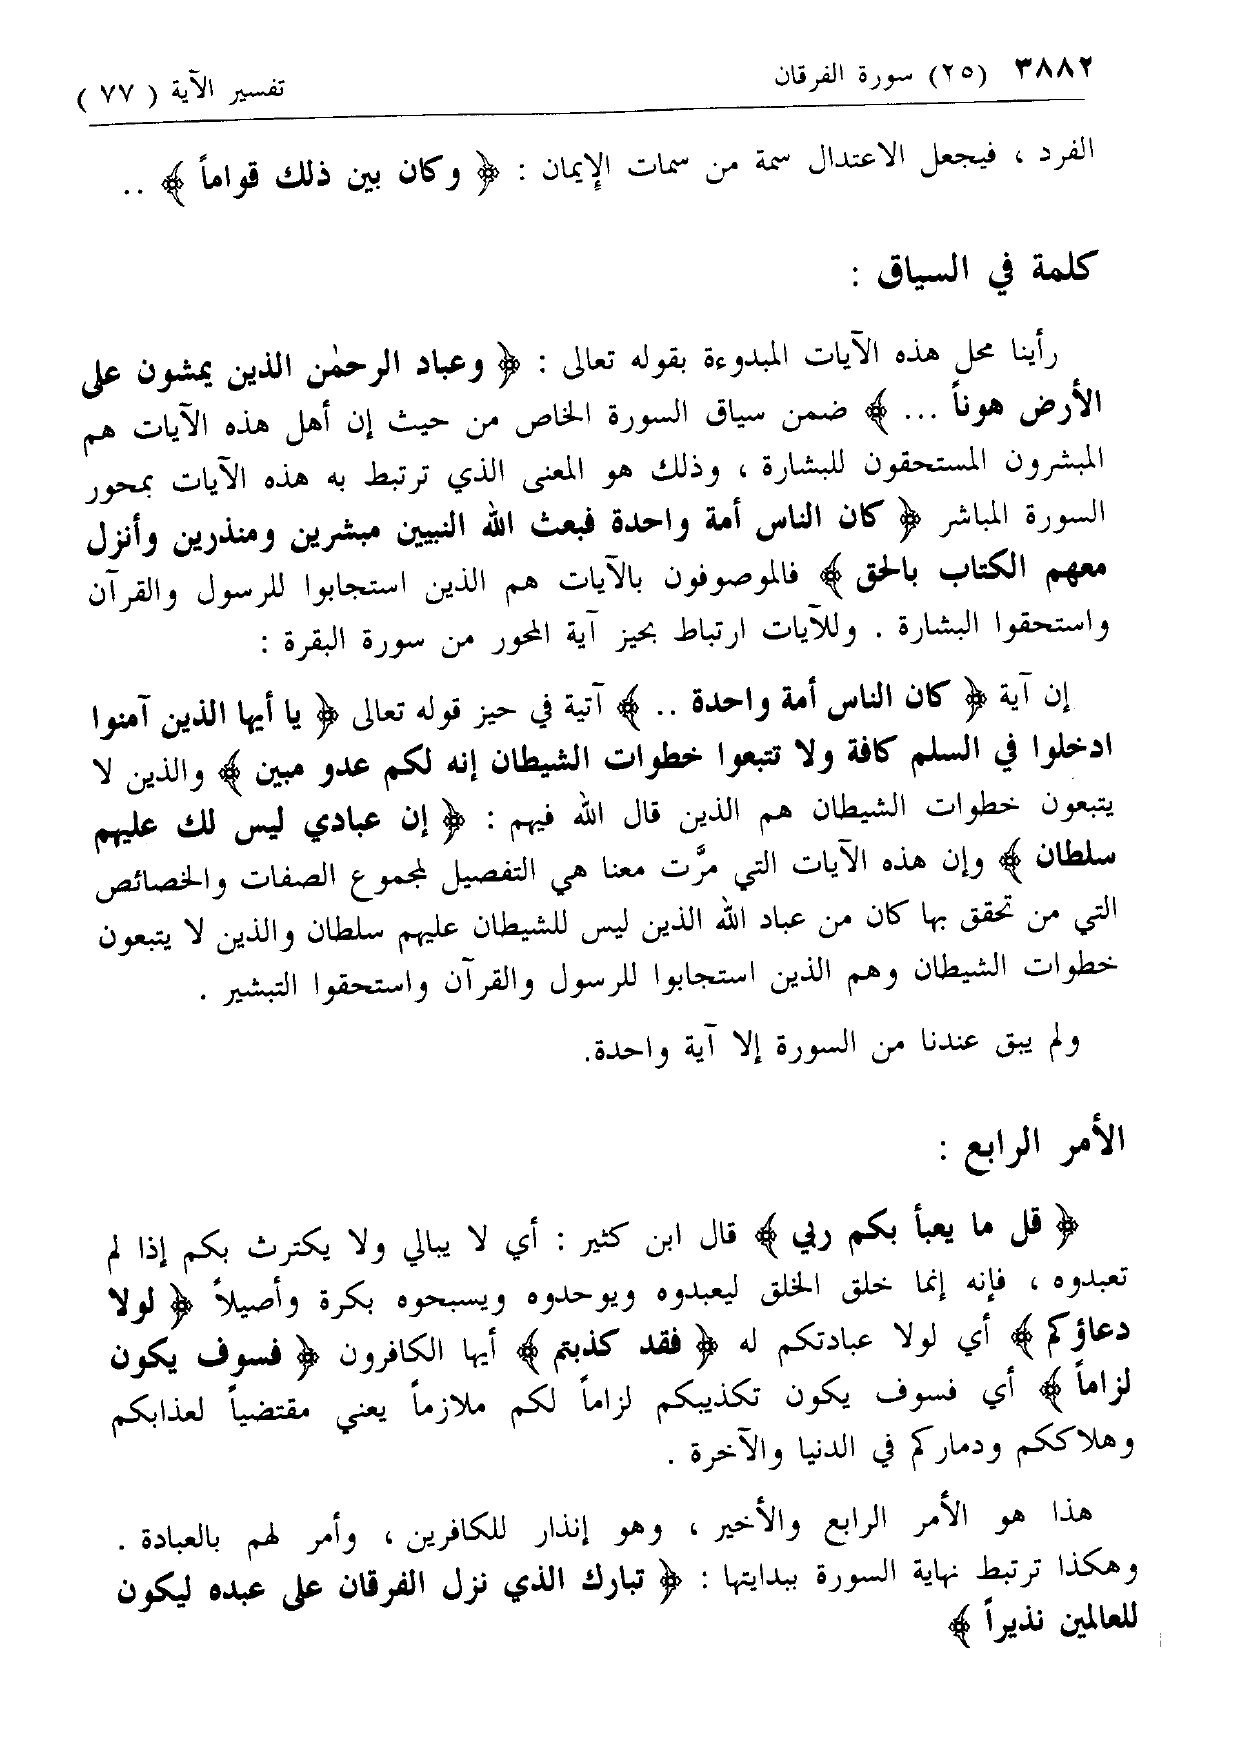 ٣٨٨٢ (٢٥) سورة الفرقان تفسير الآية ( ٧٧ )
الفرد ، فيجعل الاعتدال سمة من سمات الإيمان : ﴿ وكان بين ذلك قواماً ﴾ ..
كلمة في السياق :
رأينا محل هذه الآيات المبدوءة بقوله تعالى : ﴿ وعباد الرحمٰن الذين يمشون على
الأرض هوناً ... ﴾ ضمن سياق السورة الخاص من حيث إن أهل هذه الآيات هم
المبشرون المستحقون للبشارة ، وذلك هو المعنى الذي ترتبط به هذه الآيات بمحور
السورة المباشر ﴿ كان الناس أمة واحدة فبعث الله النبيين مبشرين ومنذرين وأنزل
معهم الكتاب بالحق ﴾ فالموصوفون بالآيات هم الذين استجابوا للرسول والقرآن
واستحقوا البشارة . وللآيات ارتباط بحيز آية المحور من سورة البقرة :
إن آية ﴿ كان الناس أمة واحدة .. ﴾ آتية في حيز قوله تعالى ﴿ يا أيها الذين آمنوا
ادخلوا في السلم كافة ولا تتبعوا خطوات الشيطان إنه لكم عدو مبين ﴾ والذين لا
يتبعون خطوات الشيطان هم الذين قال الله فيهم : ﴿ إن عبادي ليس لك عليهم
سلطان ﴾ وإن هذه الآيات التي مرَّت معنا هي التفصيل لمجموع الصفات والخصائص
التي من تحقق بها كان من عباد الله الذين ليس للشيطان عليهم سلطان والذين لا يتبعون
خطوات الشيطان وهم الذين استجابوا للرسول والقرآن واستحقوا التبشير .
ولم يبق عندنا من السورة إلا آية واحدة.
الأمر الرابع :
﴿ قل ما يعبأ بكم ربي ﴾ قال ابن كثير : أي لا يبالي ولا يكترث بكم إذا لم
تعبدوه ، فإنه إنما خلق الخلق ليعبدوه ويوحدوه ويسبحوه بكرة وأصيلاً ﴿ لولا
دعاؤكم ﴾ أي لولا عبادتكم له ﴿ فقد كذبتم ﴾ أيها الكافرون ﴿ فسوف يكون
لزاماً ﴾ أي فسوف يكون تكذيبكم لزاماً لكم ملازماً يعني مقتضياً لعذابكم
وهلاككم ودماركم في الدنيا والآخرة .
هذا هو الأمر الرابع والأخير ، وهو إنذار للكافرين ، وأمر لهم بالعبادة .
وهكذا ترتبط نهاية السورة ببدايتها : ﴿ تبارك الذي نزل الفرقان على عبده ليكون
للعالمين نذيراً ﴾